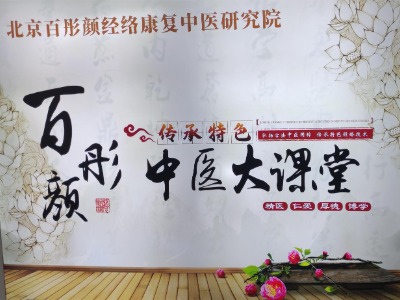 北京百彤颜经络康复中医研究院
百彤颜
传承特色
中医大课堂
精医 仁爱 厚德 博学